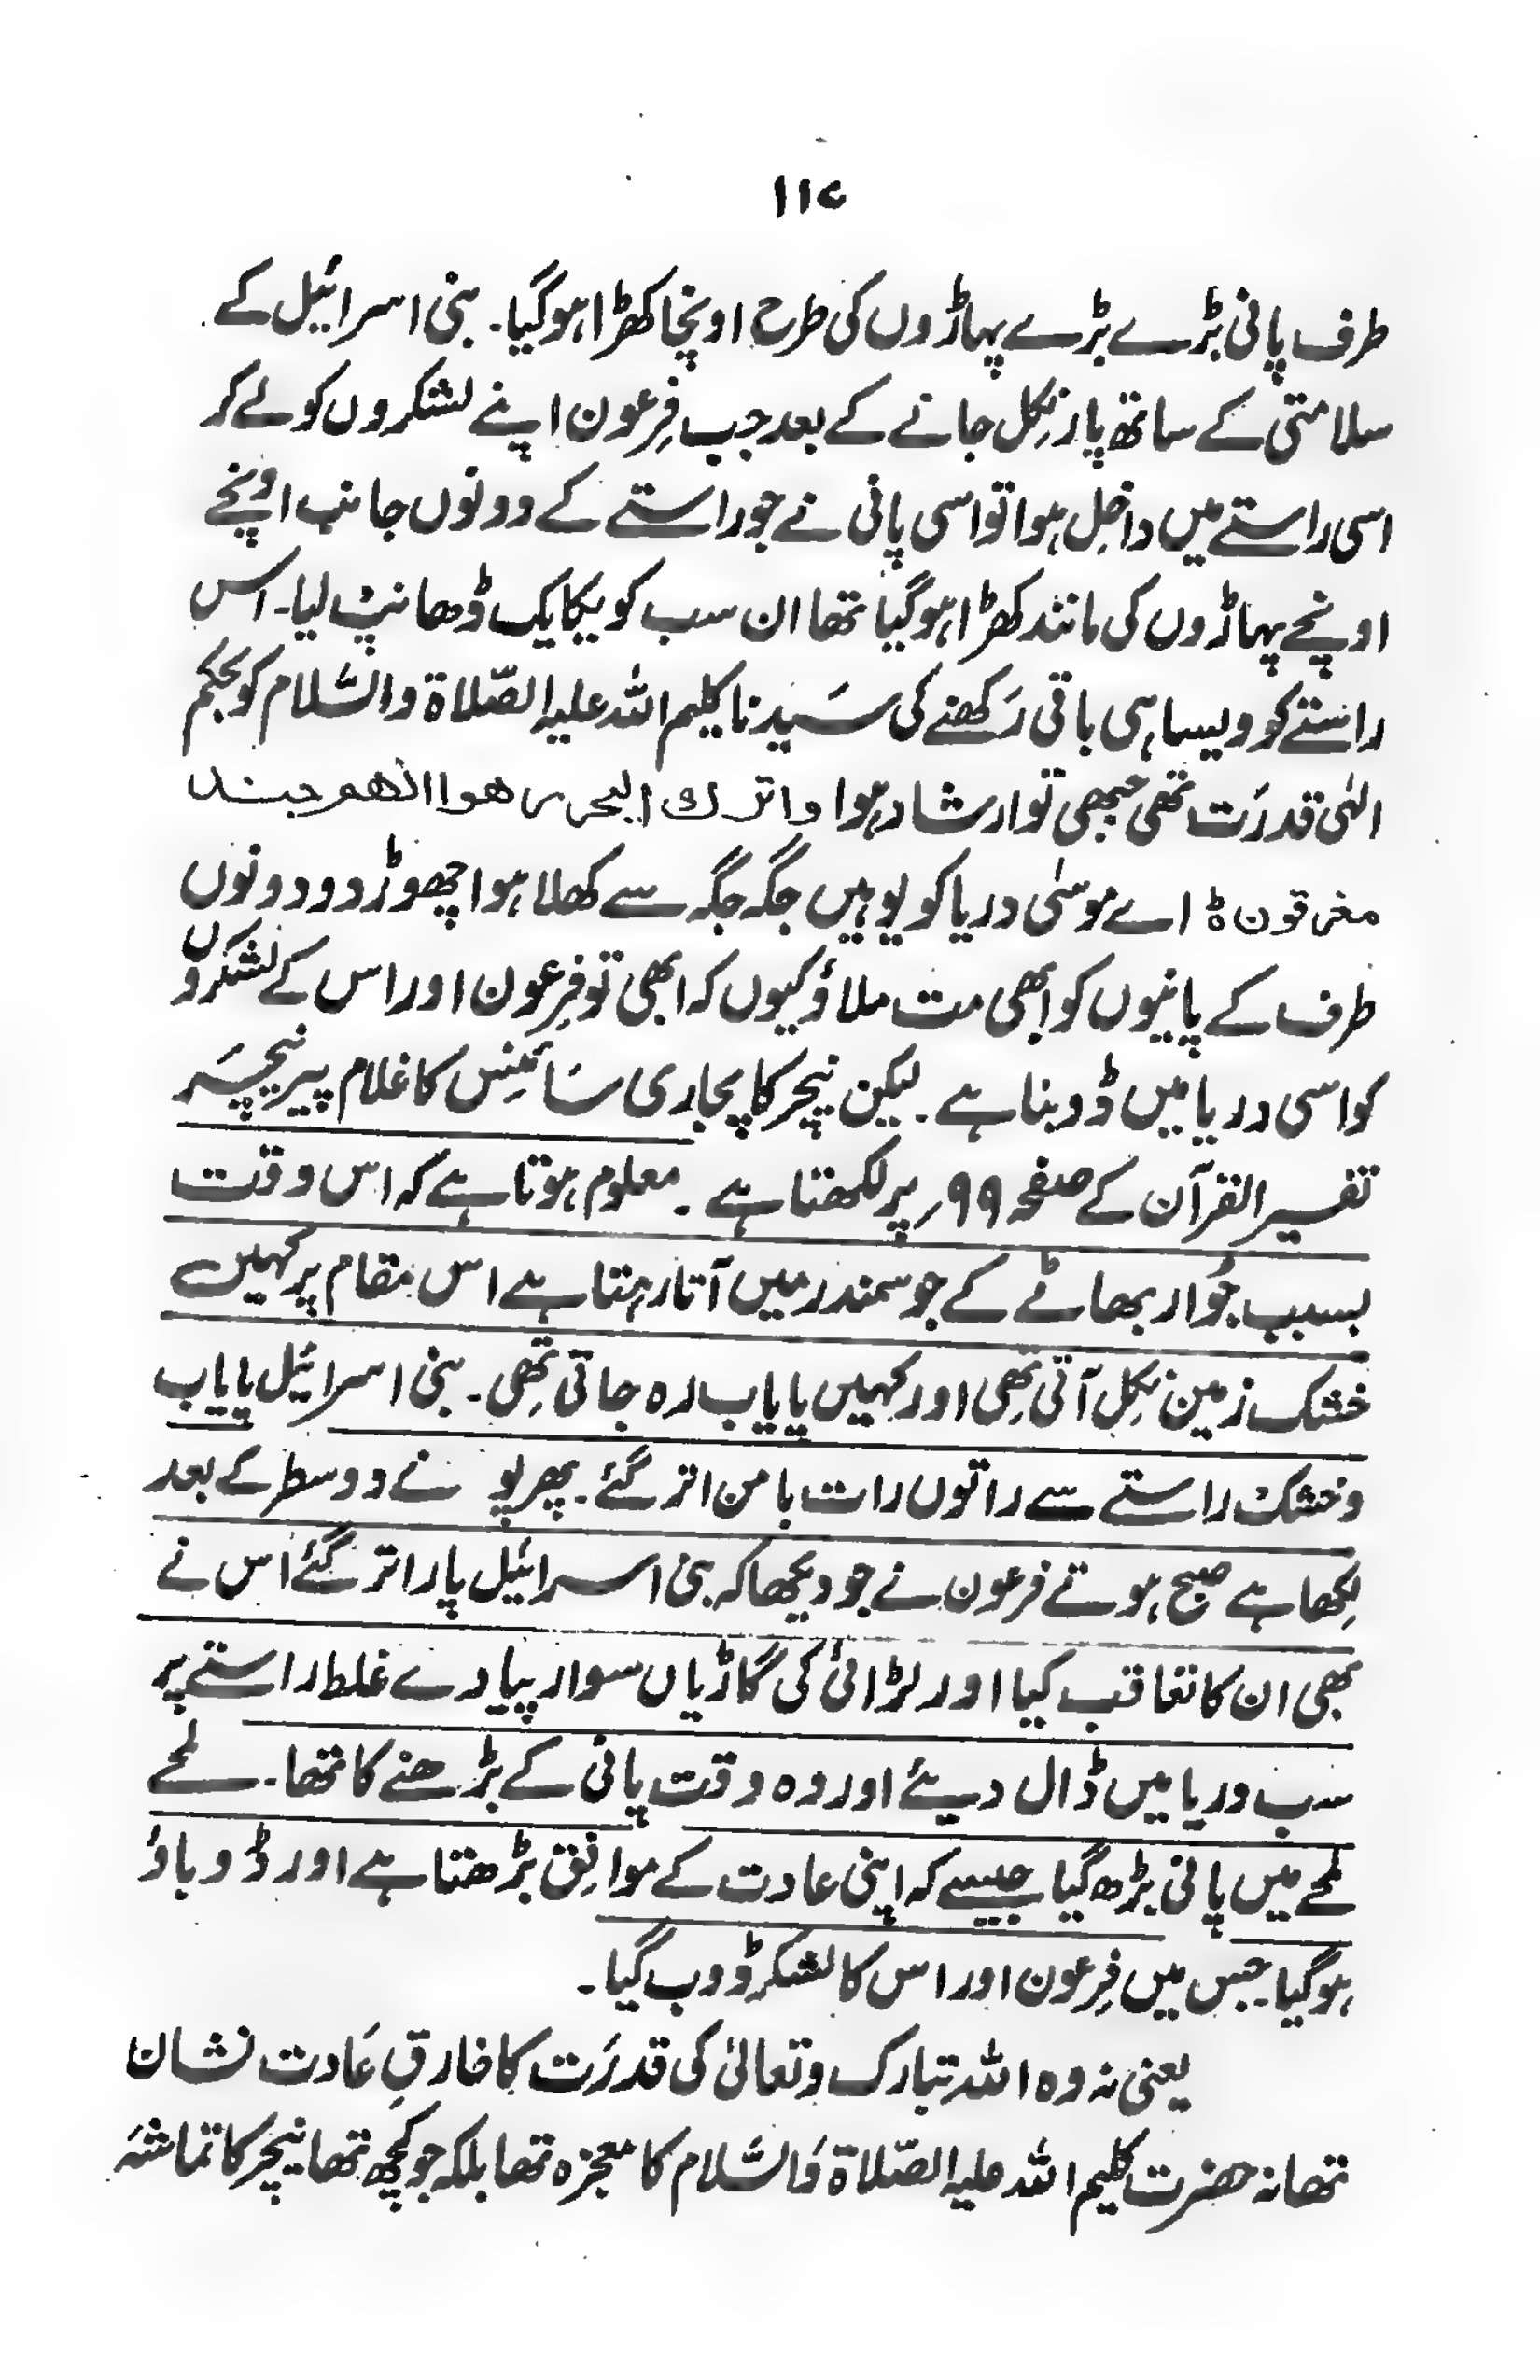 ۱۱۷
طرف پانی بڑے بڑے پہاڑوں کی طرح اونچا کھڑا ہوگیا۔ بنی اسرائیل کے
سلامتی کے ساتھ پار نِکل جانے کے بعد جب فِرعون اپنے لشکروں کو لے کر
اسی راستے میں داخِل ہوا تو اسی پانی نے جو راستے کے دونوں جانب اونچے
اونچے پہاڑوں کی مانند کھڑا ہوگیا تھا ان سب کو یکایک ڈھانپ لیا۔ اس
راستے کو ویسا ہی باقی رَکھنے کی سَیدنا کلیم اللہ علیہ الصّلاۃ والسَّلام کو بحکم
الٰہی قدرَت تھی جبھی تو ارشاد ہوا واترك البحر رهوا انهم جند
مغرقون ہ اے موسٰی دریا کو یوہیں جگہ جگہ سے کھلا ہوا چھوڑ دو دونوں
طرف کے پانیوں کو ابھی مت ملاؤ کیوں کہ ابھی تو فِرعون اور اس کے لشکروں
کو اسی دریا میں ڈوبنا ہے۔ لیکن نیچر کا پجاری سَائنِس کا غلام پیر نیچَر
تفسیر القرآن کے صفحہ ۹۹؍ پر لکھتا ہے۔ معلوم ہوتا ہے کہ اس وقت
بسبب جُوار بھاٹے کے جو سمندر میں آتا رہتا ہے اس مقام پر کہیں
خشک زمین نِکل آتی تھِی اور کہیں پایاب رہ جاتی تھِی۔ بنی اسرائیل پایاب
و خشک راستے سے راتوں رات بامن اتر گئے۔ پھر پو نے دو سطر کے بعد
لِکھا ہے صبح ہوتے فرعون نے جو دیکھا کہ بنی اسرائیل پار اتر گئے اس نے
بھی ان کا تعاقب کیا اور لڑائی کی گاڑیاں سوار پیادے غلط راستے پر
سب دریا میں ڈال دیئے اور وہ وقت پانی کے بڑھنے کا تھا۔ لمحے
لمحے میں پانی بڑھ گیا جیسے کہ اپنی عادت کے موافِق بڑھتا ہے اور ڈوباؤ
ہوگیا جس میں فِرعون اور اس کا لشکر ڈوب گیا۔
یعنی نہ وہ اللہ تبارک وتعالیٰ کی قدرَت کا خارقِ عَادت نشان
تھا نہ حضرت کلیم اللہ علیہ الصّلاۃ وَالسَّلام کا معجزہ تھا بلکہ جو کچھ تھا نیچر کا تماشہ